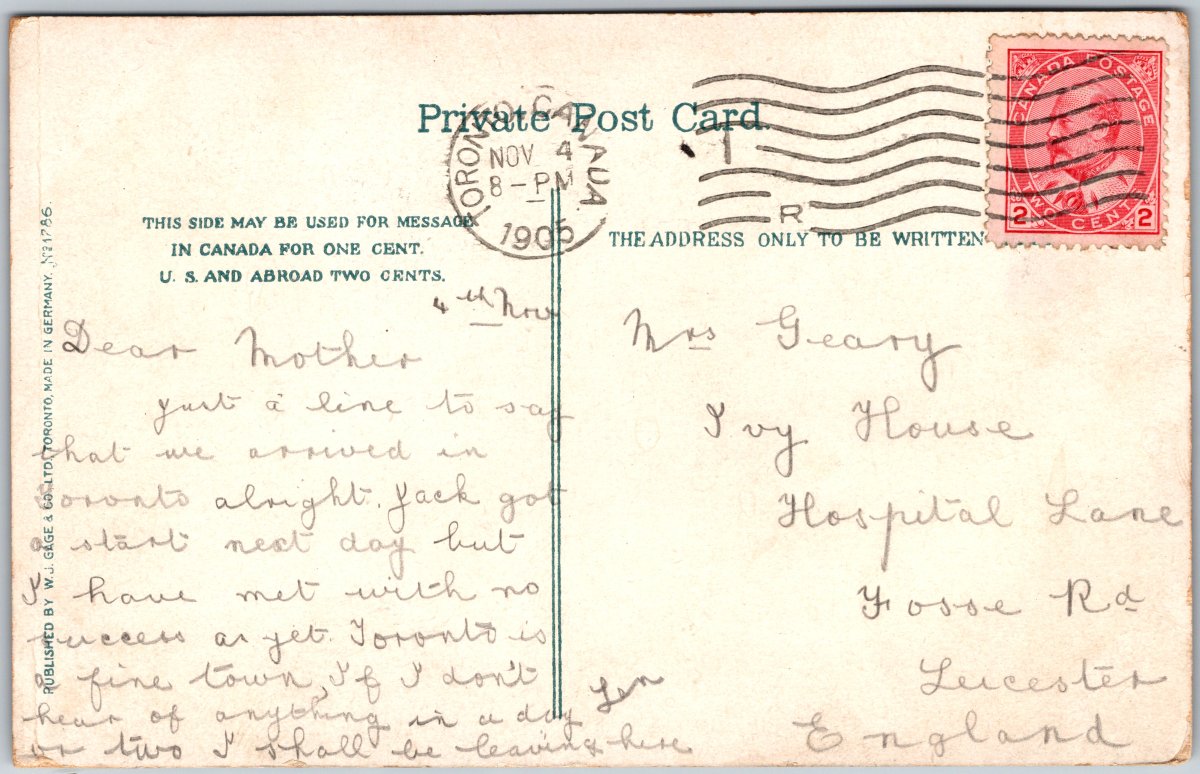 Private Post Card.
TORONTO CANADA
NOV 4
8-PM
190
T
R
CANADA POSTAGE
2 TWO CENTS 2
THIS SIDE MAY BE USED FOR MESSAGE
IN CANADA FOR ONE CENT.
U. S. AND ABROAD TWO CENTS.
THE ADDRESS ONLY TO BE WRITTEN
PUBLISHED BY W. J. GAGE & CO. LTD, TORONTO, MADE IN GERMANY. No 1786.
4th Nov
Dear Mother
just a line to say
that we arrived in
Toronto alright. Jack got
a start next day but
I have met with no
success as yet. Toronto is
a fine town, If I don't
hear of anything in a day
or two I shall be leaving here
Len
Mrs Geary
Ivy House
Hospital Lane
Fosse Rd
Leicester
England